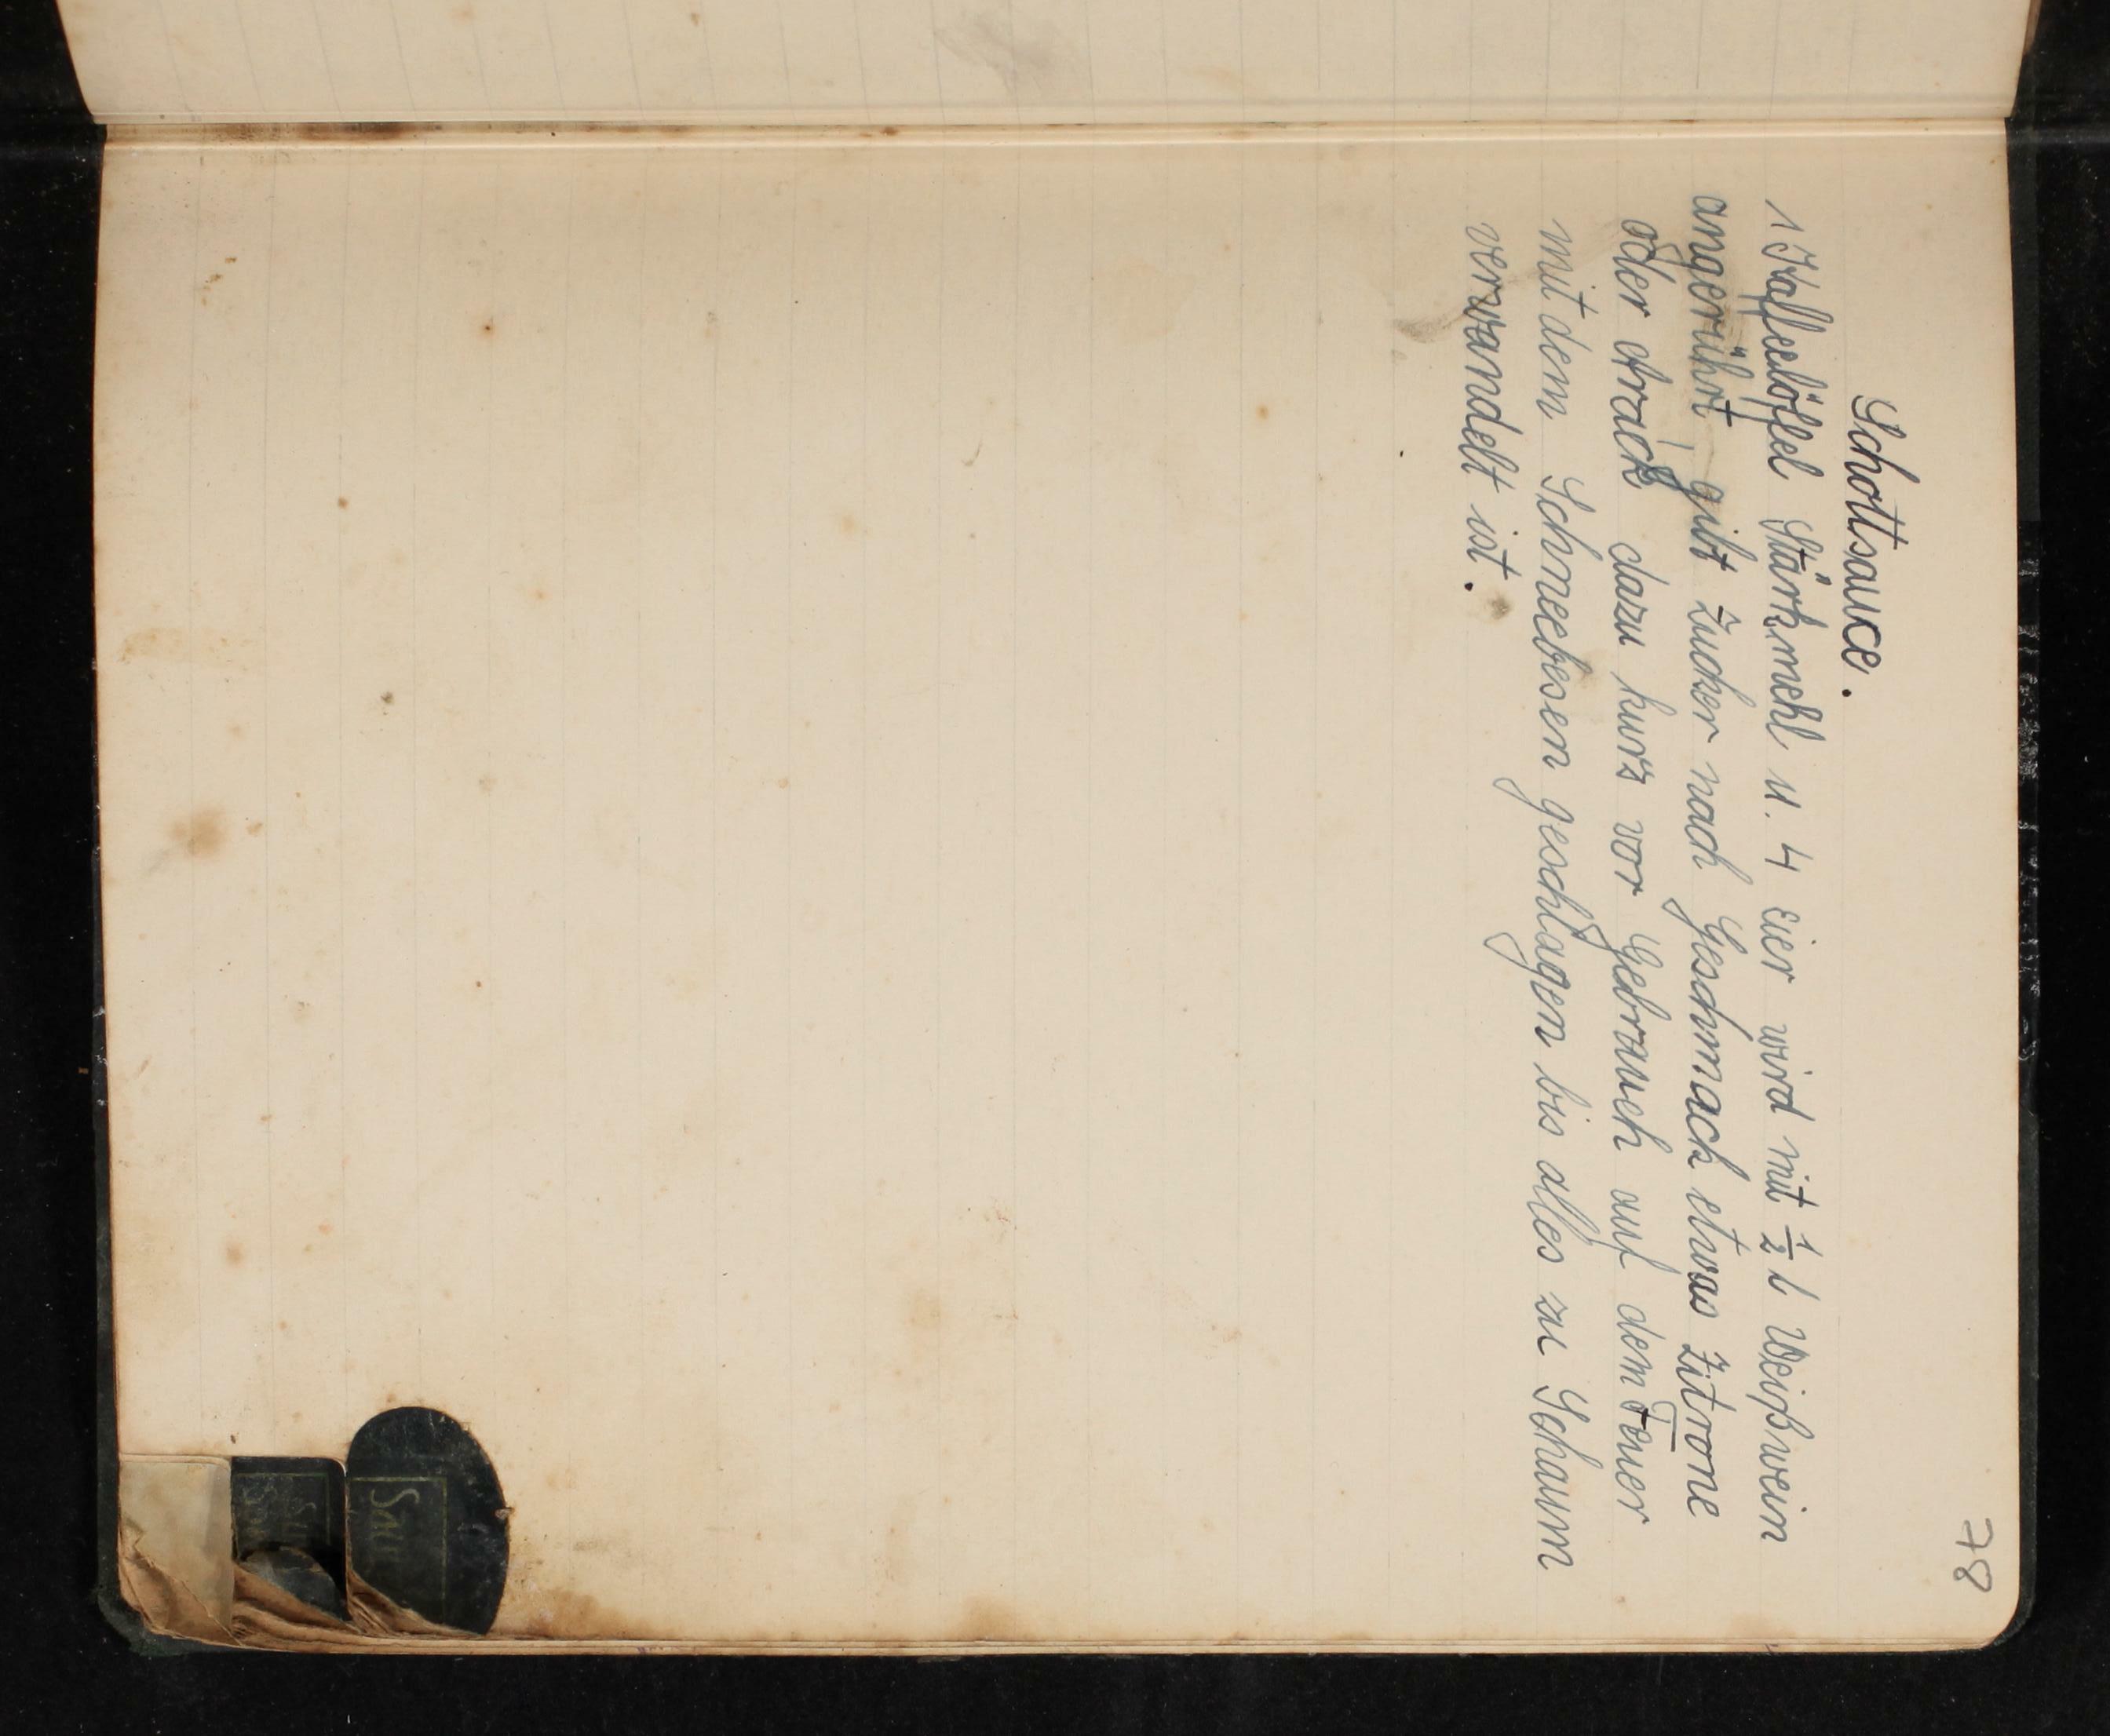 78
Schottsauce.
1 Kaffeelöffel Stärkmehl u. 4 Eier wird mit ½ l Weißwein
angerührt gibt Zucker nach Geschmack etwas Zitrone
oder Arack dazu kurz vor Gebrauch auf dem Feuer
mit dem Schneebesen geschlagen bis alles zu Schaum
verwandelt ist.